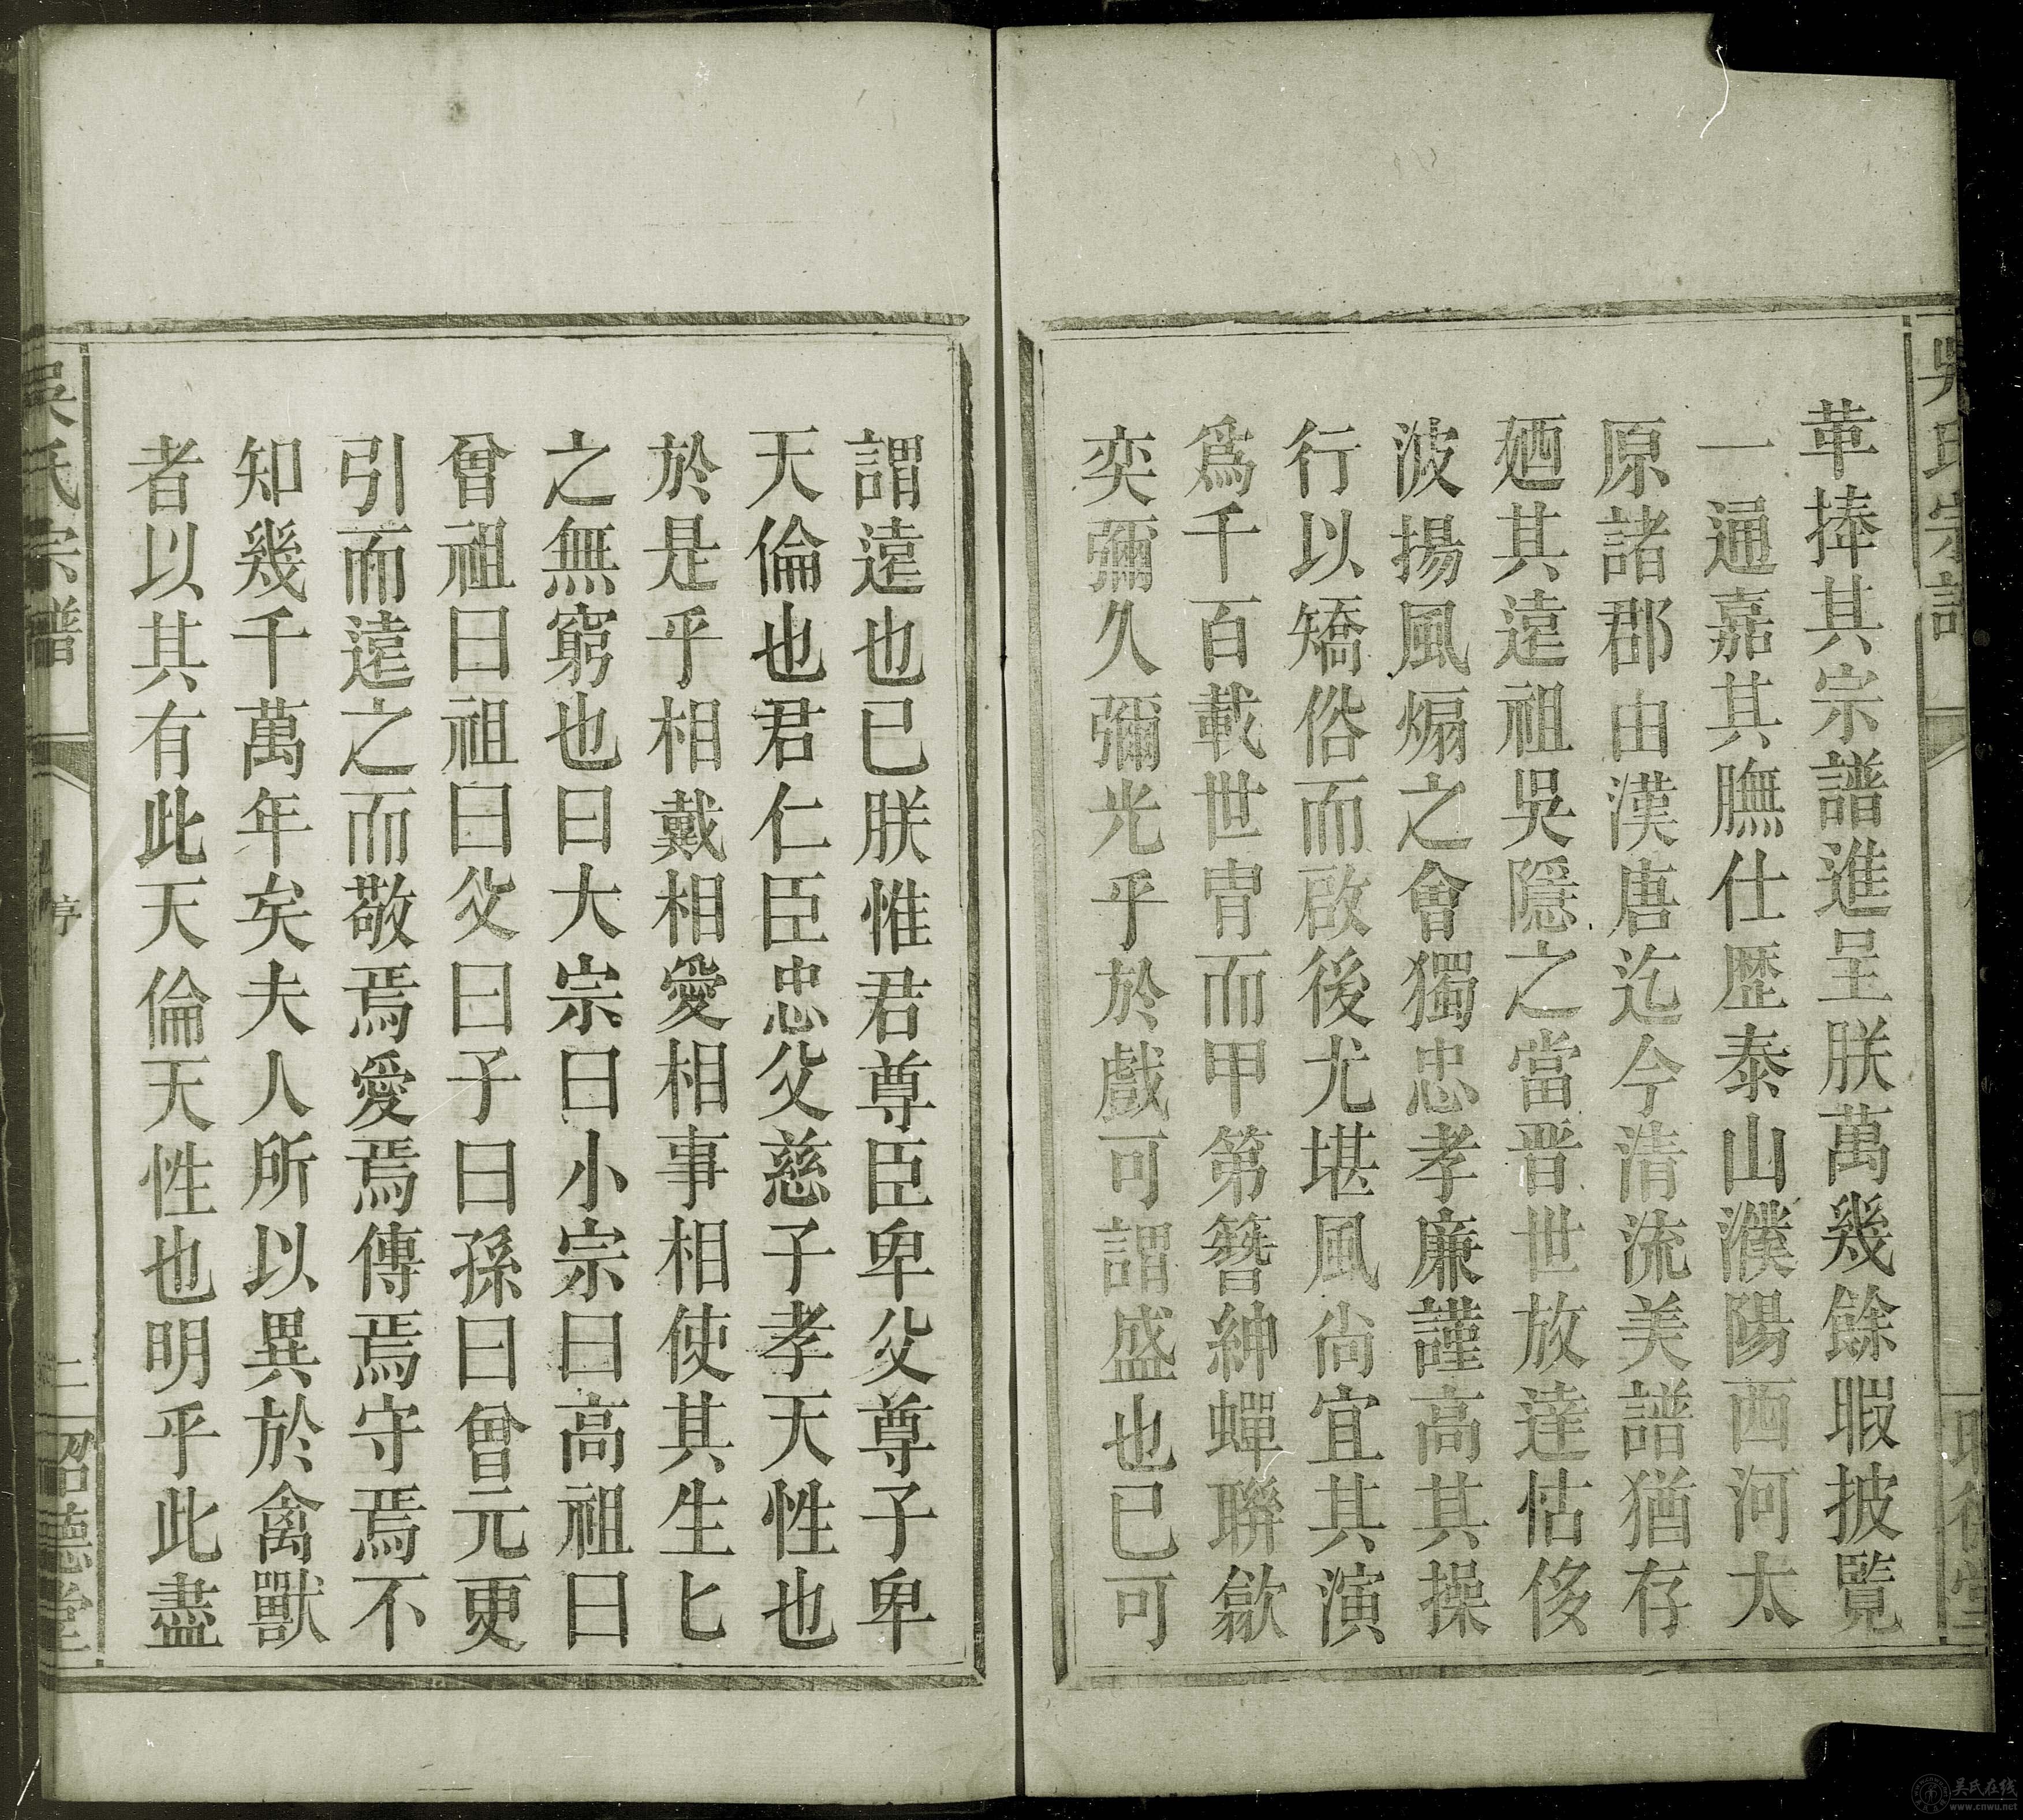 吳氏宗譜
革捧其宗譜進呈朕萬幾餘暇披覽
一通嘉其膴仕歷泰山濮陽西河太
原諸郡由漢唐迄今清流美譜猶存
廼其遠祖吳隱之當晋世放達怙侈
波揚風煽之會獨忠孝廉謹高其操
行以矯俗而啟後尤堪風尙宜其演
爲千百載世胄而甲第簪紳蟬聯歙
奕彌久彌光乎於戲可謂盛也已可
謂遠也已朕惟君尊臣卑父尊子卑
天倫也君仁臣忠父慈子孝天性也
於是乎相戴相愛相事相使其生匕
之無窮也曰大宗曰小宗曰高祖曰
曾祖曰祖曰父曰子曰孫曰曾元更
引而遠之而敬焉愛焉傳焉守焉不
知幾千萬年矣夫人所以異於禽獸
者以其有此天倫天性也明乎此盡
吳氏宗譜
序
二
昭德堂
吴氏在线
www.cnwu.net